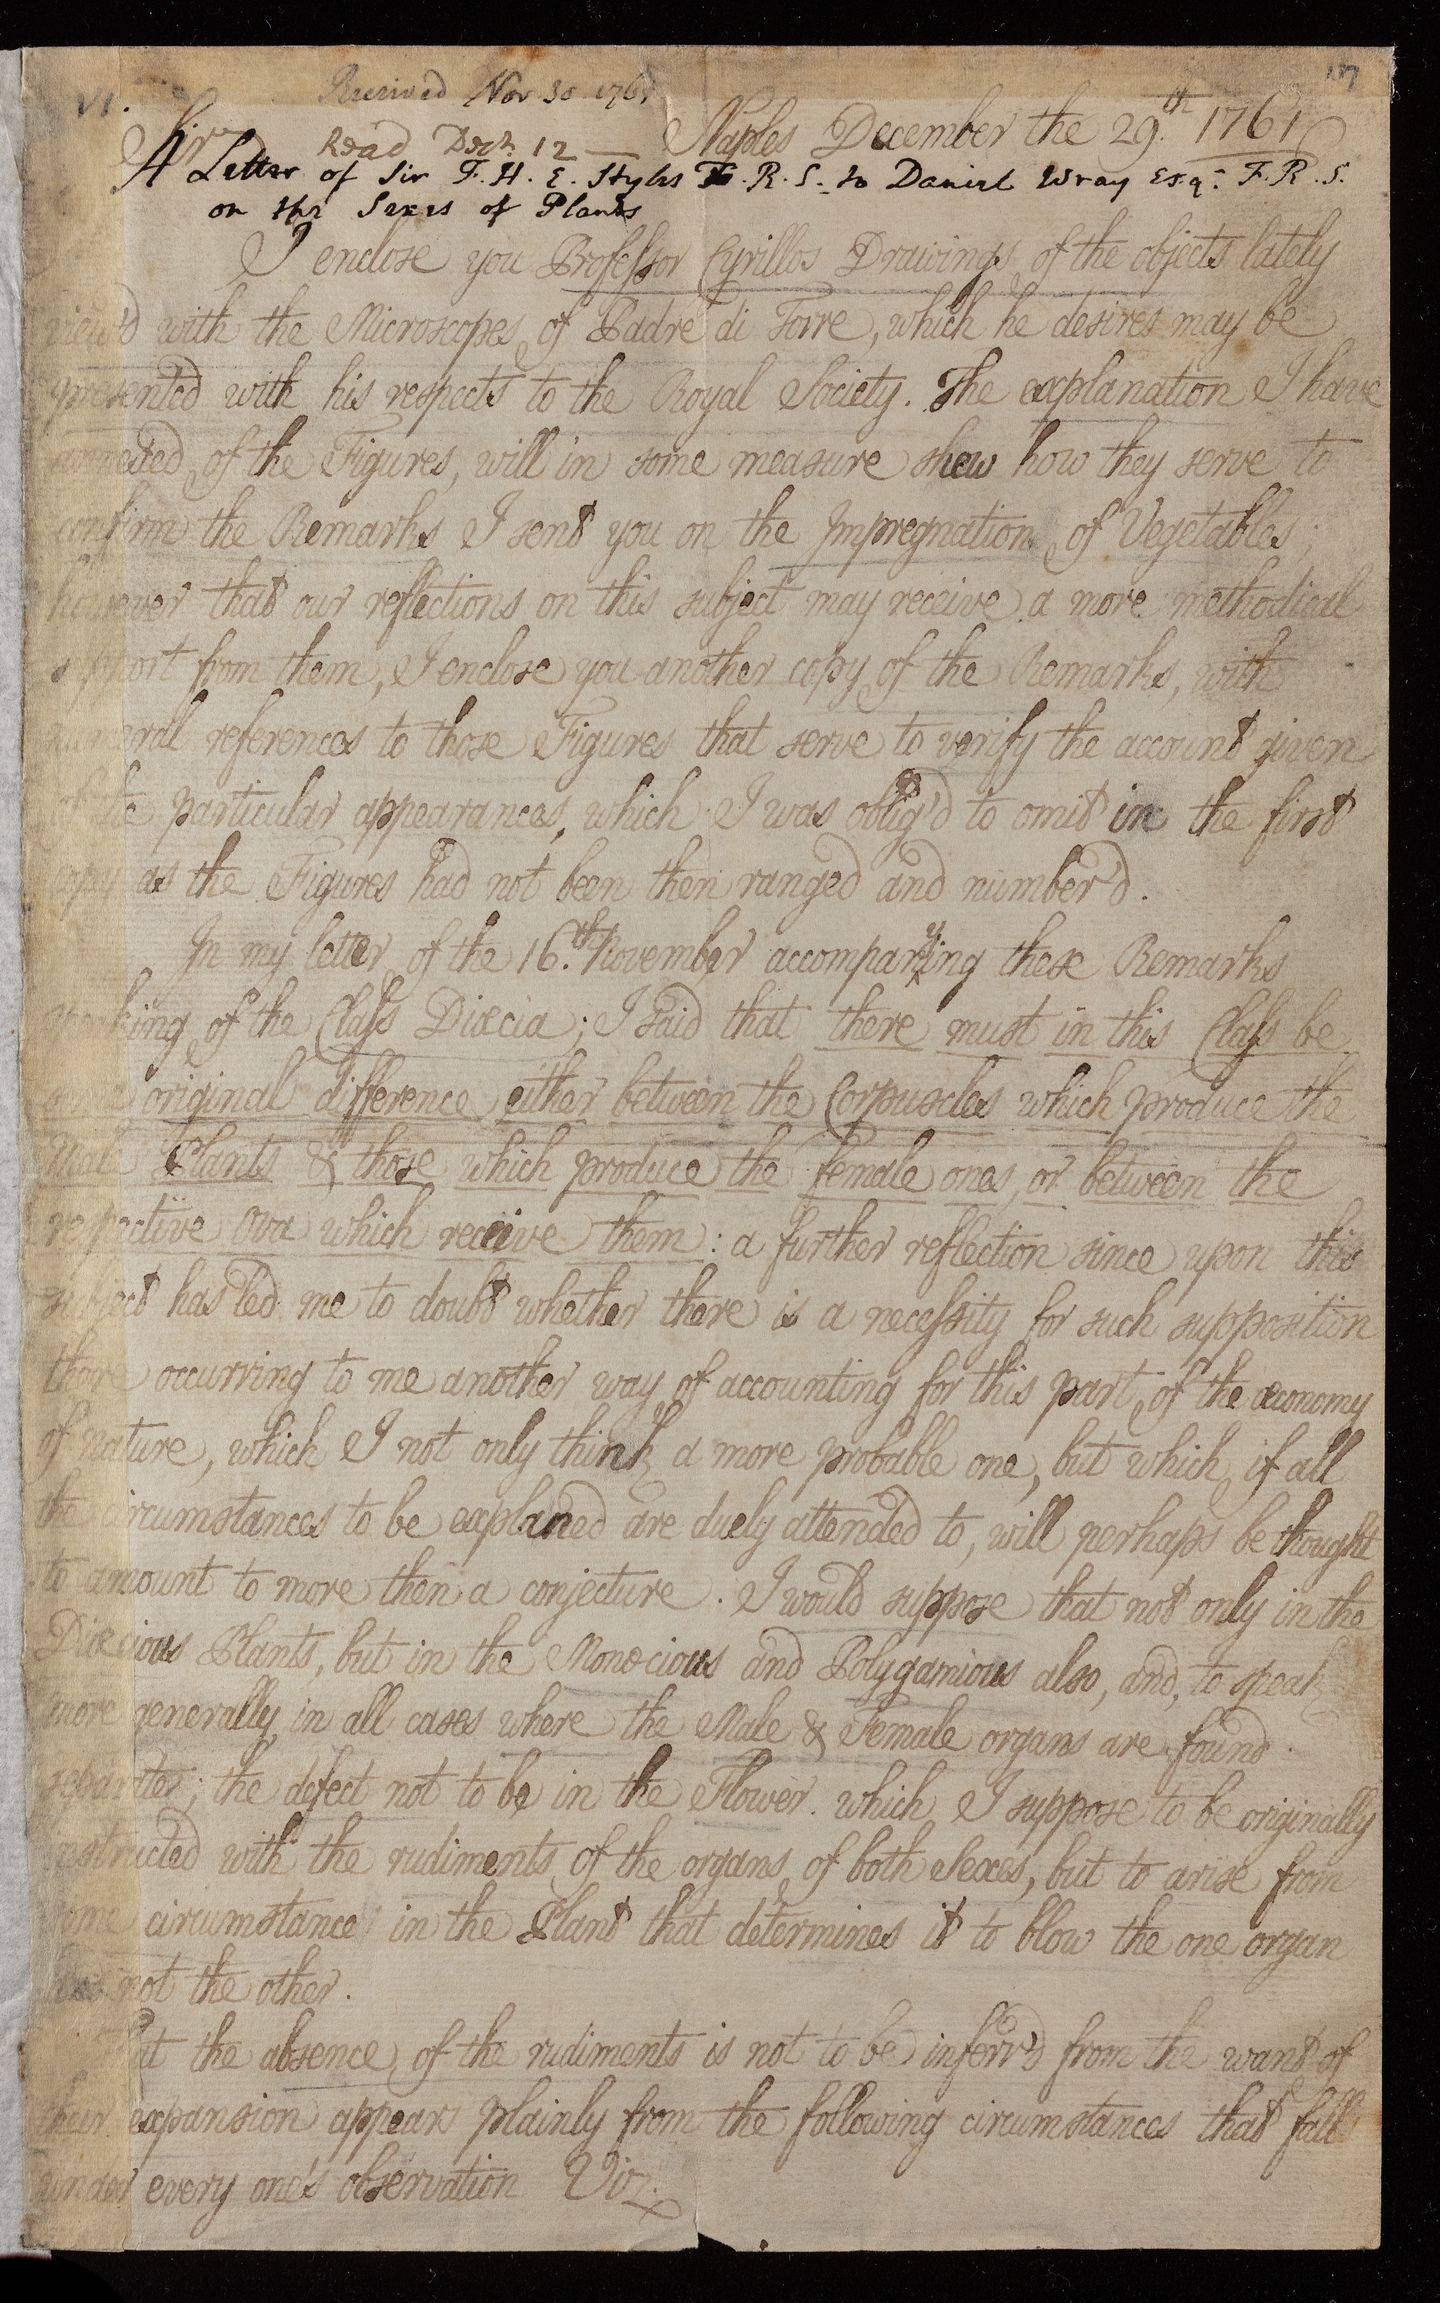 VI.
Received Nov 30 1761
Sir Read Decr. 12 — Naples December the 29.th 1761
A Letter of Sir F. H. E. Styles F. R. S. to Daniel Wray Esqr. F. R. S.
on the Sexes of Plants
I enclose you Professor Cyrillos Drawings of the objects lately
view'd with the Microscopes of Padre di Torre, which he desires may be
presented with his respects to the Royal Society. The explanation I have
annexed of the Figures, will in some measure shew how they serve to
confirm the Remarks I sent you on the Impregnation of Vegetables;
however that our reflections on this subject may receive a more methodical
support from them, I enclose you another copy of the Remarks, with
numeral references to those Figures that serve to verify the account given
of the particular appearances, which I was oblig'd to omit in the first
copy as the Figures had not been then ranged and number'd.
In my letter of the 16.th November accompanying these Remarks
speaking of the Class Diœcia; I said that there must in this Class be
some original difference either between the Corpuscles which produce the
Male Plants & those which produce the female ones, or between the
respective Ova which receive them: a further reflection since upon this
subject has led me to doubt whether there is a necessity for such supposition
there occurring to me another way of accounting for this part of the œconomy
of Nature, which I not only think a more probable one, but which if all
the circumstances to be explained are duely attended to, will perhaps be thought
to amount to more then a conjecture. I would suppose that not only in the
Diœcious Plants, but in the Monœcious and Polygamious also, and, to speak
more generally in all cases where the Male & Female organs are found
separated; the defect not to be in the Flower which I suppose to be originally
constructed with the rudiments of the organs of both Sexes, but to arise from
some circumstance in the Plant that determines it to blow the one organ
and not the other.
That the absence of the rudiments is not to be inferr'd from the want of
their expansion appears plainly from the following circumstances that fall
under every one's observation Viz.